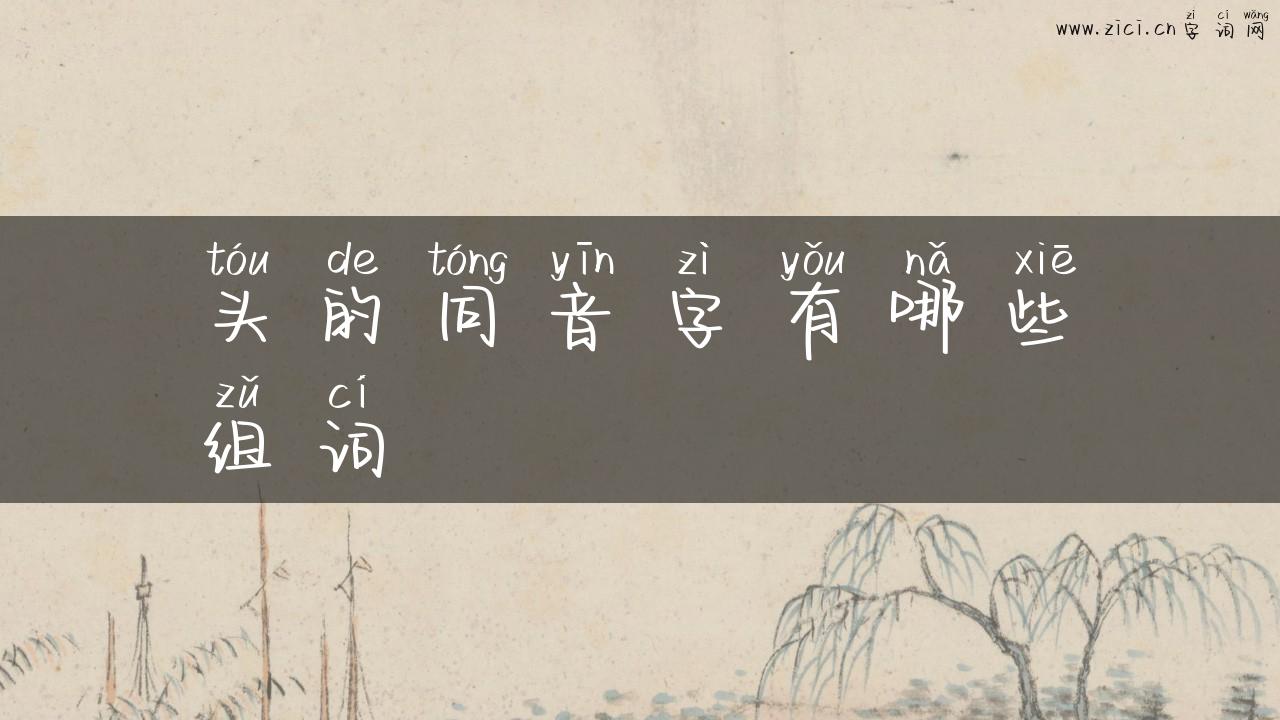 zì cí wǎng
www.zici.cn 字词网
tóu de tóng yīn zì yǒu nǎ xiē
头的同音字有哪些
zǔ cí
组词